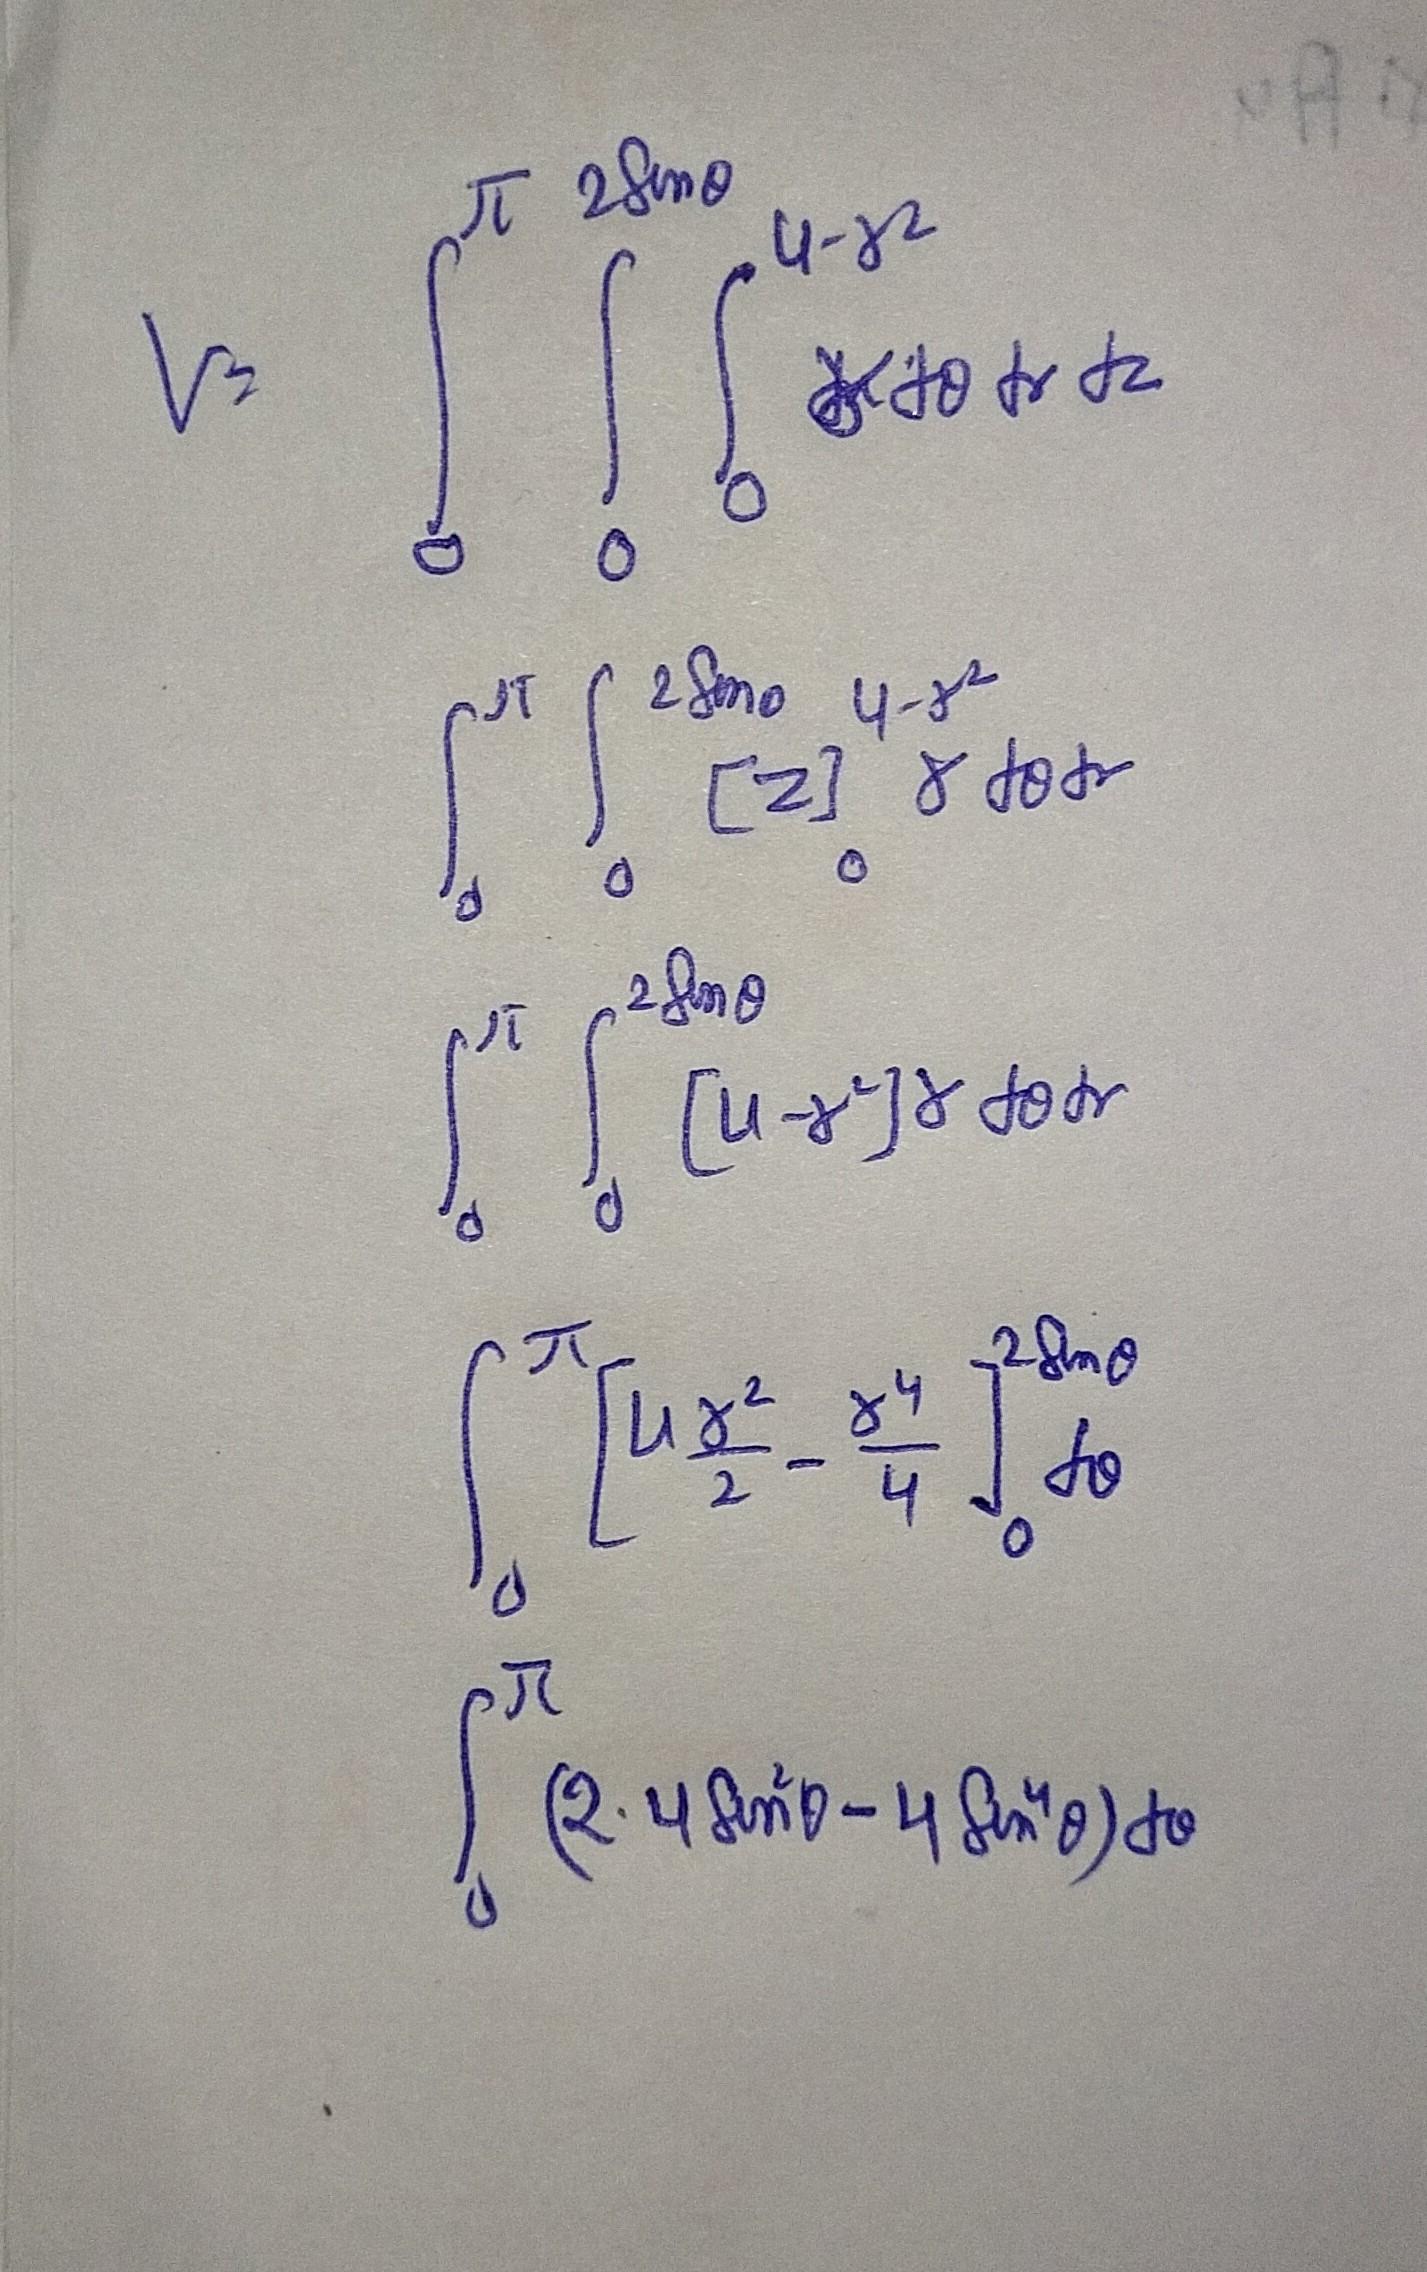 V = ∫₀^π ∫₀^{2 sinθ} ∫₀^{4-r²} r dθ dr dz
∫₀^π ∫₀^{2 sinθ} [z]₀^{4-r²} r dθ dr
∫₀^π ∫₀^{2 sinθ} [4-r²] r dθ dr
∫₀^π [4 r²/2 - r⁴/4]₀^{2 sinθ} dθ
∫₀^π (2·4 sin²θ - 4 sin⁴θ) dθ